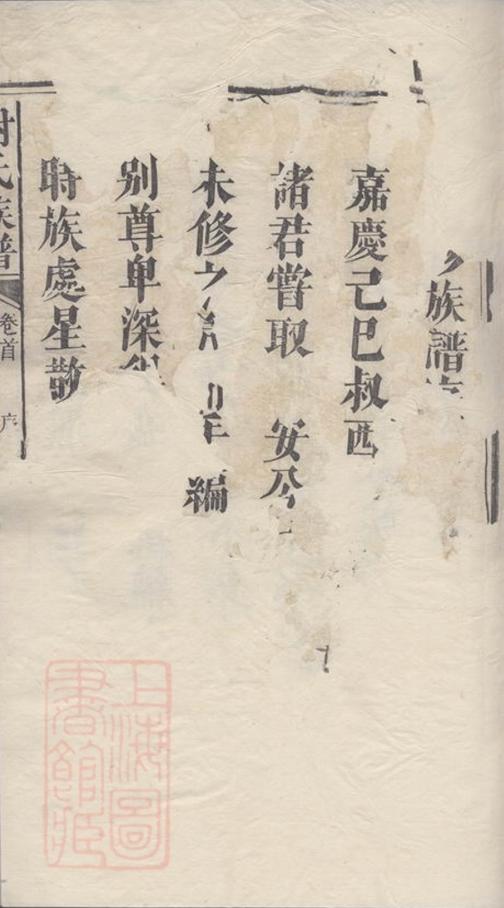 族譜
嘉慶己巳叔西
諸君嘗取 安
未修 年 編
别尊卑深
時族處星散
氏族譜 卷首 序
上海圖
書館藏